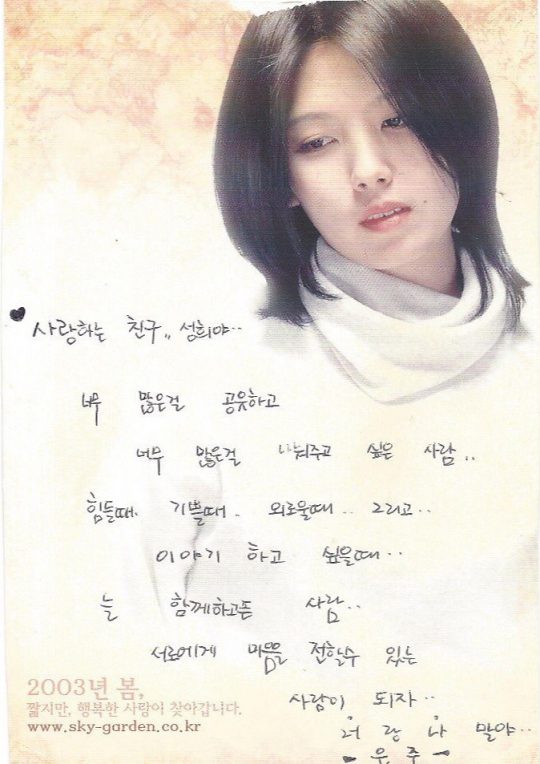 사랑하는 친구,, 성희야..
너무 많은걸 공유하고
너무 많은걸 나눠주고 싶은 사람..
힘들때. 기쁠때. 외로울때.. 그리고..
이야기 하고 싶을때..
늘 함께하고픈 사람..
서로에게 마음을 전할수 있는
사람이 되자..
너랑 나 말야..
- 우.주 -
2003년 봄,
짧지만, 행복한 사랑이 찾아갑니다.
www.sky-garden.co.kr